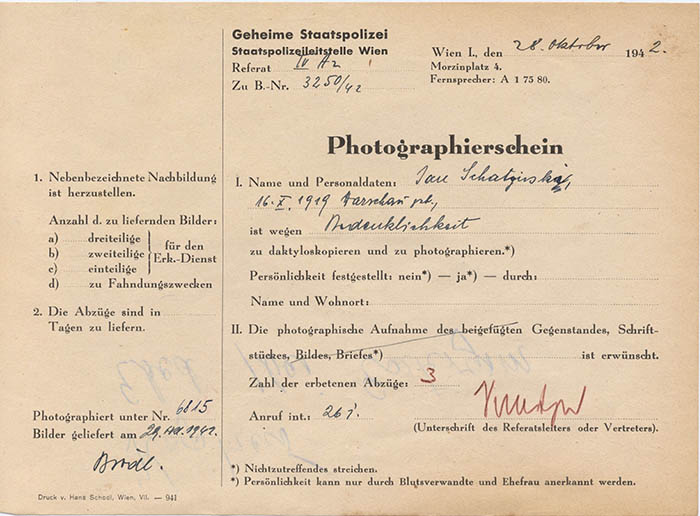 Geheime Staatspolizei
Staatspolizeileitstelle Wien
Referat IV A2
Zu B.-Nr. 3250/42
Wien I., den 28. Oktober 1942.
Morzinplatz 4.
Fernsprecher: A 1 75 80.
Photographierschein
1. Nebenbezeichnete Nachbildung
ist herzustellen.
Anzahl d. zu liefernden Bilder:
a) dreiteilige
b) zweiteilige
c) einteilige
für den
Erk.-Dienst
d) zu Fahndungszwecken
2. Die Abzüge sind in
Tagen zu liefern.
Photographiert unter Nr. 6815
Bilder geliefert am 29. 1942.
Druck v. Hans School, Wien, VII. — 941
I. Name und Personaldaten: Jan
16. X. 1919 Warschau
ist wegen Bedenklichkeit
zu daktyloskopieren und zu photographieren.*)
Persönlichkeit festgestellt: nein*) — ja*) — durch:
Name und Wohnort:
II. Die photographische Aufnahme des beigefügten Gegenstandes, Schrift-
stückes, Bildes, Briefes*) ist erwünscht.
Zahl der erbetenen Abzüge: 3
Anruf int.: 26
(Unterschrift des Referatsleiters oder Vertreters).
*) Nichtzutreffendes streichen.
*) Persönlichkeit kann nur durch Blutsverwandte und Ehefrau anerkannt werden.